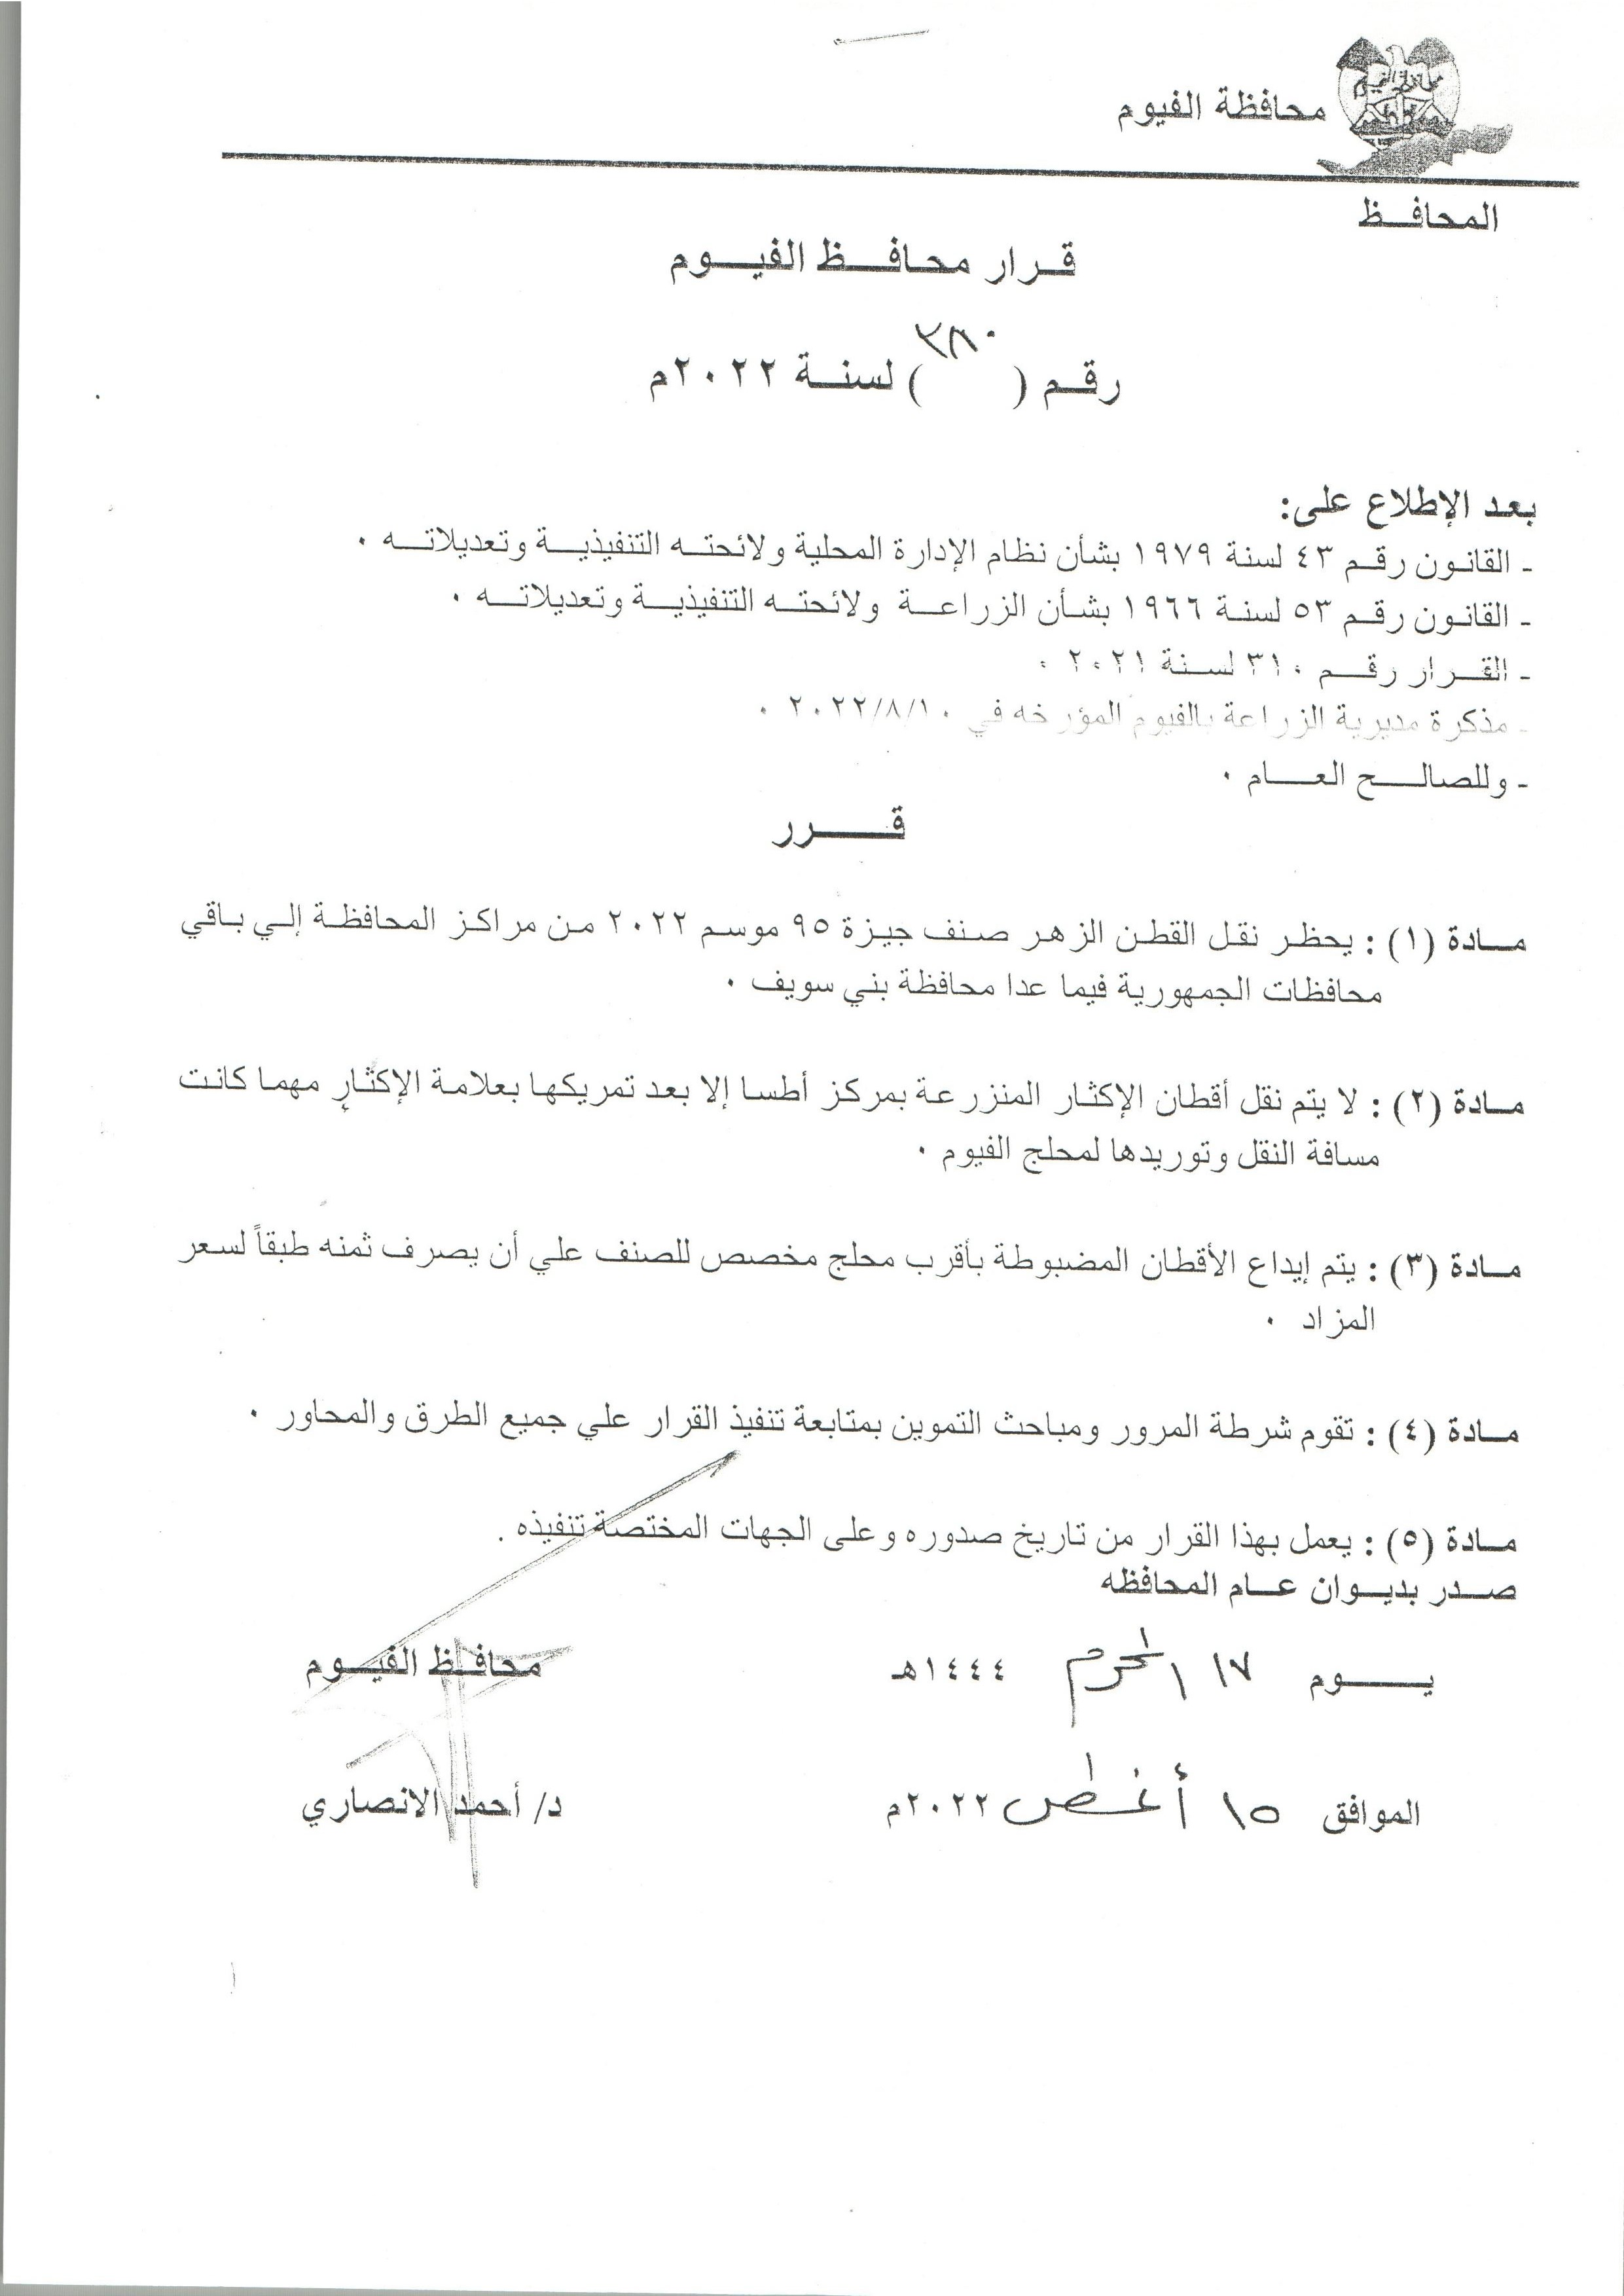 محافظة الفيوم
المحافـــظ
قـرار محـافـــظ الفيـــوم
٣٨٠
رقـم (      ) لسنـــة ٢٠٢٢م
بعد الإطلاع على:
- القانون رقـم ٤٣ لسنة ١٩٧٩ بشأن نظام الإدارة المحلية ولائحتـه التنفيذيـــة وتعديلاتـــه .
- القانون رقـم ٥٣ لسنة ١٩٦٦ بشـأن الزراعـــة ولائحتـه التنفيذيـــة وتعديلاتـــه .
- القـــرار رقـــم ٣١٠ لســـنة ٢٠٢١ .
- مذكرة مديرية الزراعة بالفيوم المؤرخه في ٢٠٢٢/٨/١٠ .
- وللصالـــــح العـــــام .
قـــــرر
مـــادة (١) : يحظـر نقـل القطـن الزهـر صـنف جيـزة ٩٥ موسـم ٢٠٢٢ مـن مراكـز المحافظـة إلـي بـاقي
محافظات الجمهورية فيما عدا محافظة بني سويف .
مـــادة (٢) : لا يتم نقل أقطان الإكثـار المنزرعـة بمركز أطسا إلا بعد تمريكها بعلامة الإكثـار مهمـا كانت
مسافة النقل وتوريدها لمحلج الفيوم .
مـــادة (٣) : يتم إيداع الأقطان المضبوطة بأقرب محلج مخصص للصنف علي أن يصرف ثمنه طبقاً لسعر
المزاد .
مـــادة (٤) : تقوم شرطة المرور ومباحث التموين بمتابعة تنفيذ القرار علي جميع الطرق والمحاور .
مـــادة (٥) : يعمل بهذا القرار من تاريخ صدوره وعلى الجهات المختصة تنفيذه .
صـــدر بديـــوان عـــام المحافظه
يـــــوم ١٧ المحرم ١٤٤٤هـ
محافـــظ الفيـــوم
الموافق ١٥ أغسطس ٢٠٢٢م
د/ أحمد الانصاري